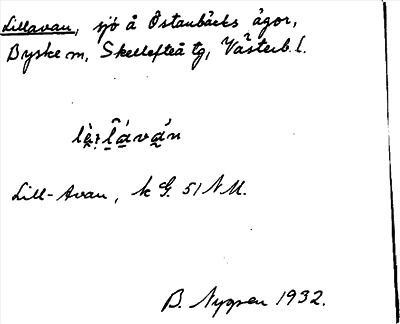 Lillavan, sjö å Östanbäcks ägor,
Byske m, Skellefteå tg, Västerb. l.
Lill-Avan, k G. 51 N U.
B. Nygren 1932.